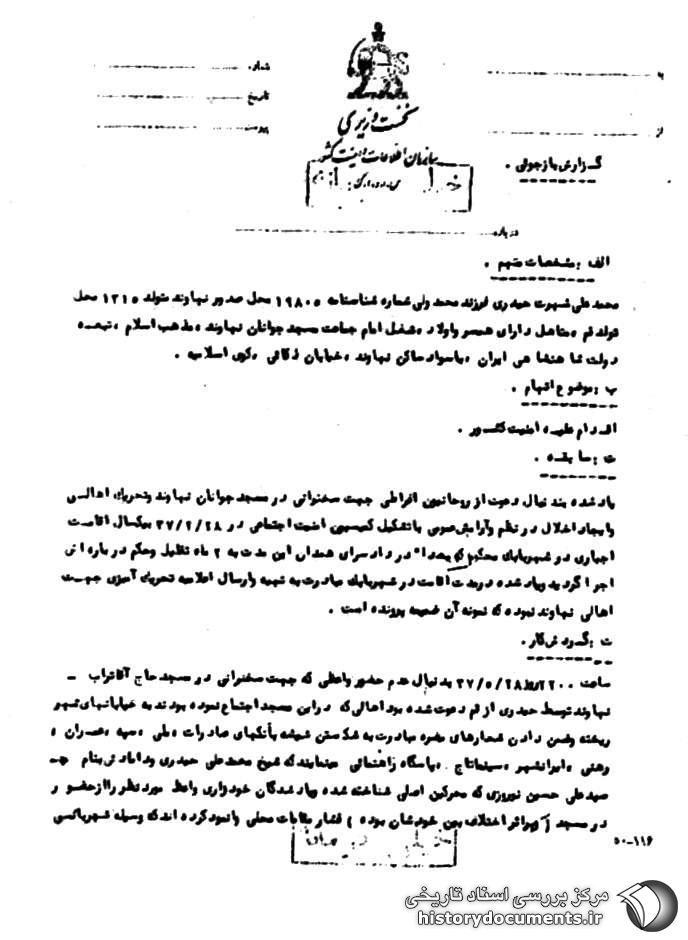 به
شماره
تاریخ
از
پیوست
نخست وزیری
سازمان اطلاعات و امنیت کشور
گزارش بازجوئی .
درباره
الف : مشخصات متهم .
محمد علی شهرت حیدری فرزند محمد ولی شماره شناسنامه ۱۹۸۰۵ محل صدور نهاوند متولد ۱۳۱۵ محل
تولد قم ، متاهل دارای همسر و اولاد ، شغل امام جماعت مسجد جوانان نهاوند ، مذهب اسلام ، تبعه
دولت شاهنشاهی ایران ، باسواد ساکن نهاوند ، خیابان ذکائی ، کوی اسلامیه .
ب : موضوع اتهام .
اقدام علیه امنیت کشور .
ت : سابقه .
یاد شده بدنبال دعوت از روحانیون افراطی جهت سخنرانی در مسجد جوانان نهاوند و تحریک اهالی
و ایجاد اخلال در نظم و آرامش عمومی با تشکیل کمیسیون امنیت اجتماعی در ۳۷/۲/۲۸ بیکسال اقامت
اجباری در شهربابک محکوم که بعدا" در دادسرای همدان این مدت به ۲ ماه تقلیل و حکم درباره اش
اجرا گردید و یاد شده در مدت اقامت در شهربابک مبادرت به تهیه و ارسال اعلامیه تحریک آمیزی جهت
اهالی نهاوند نموده که نمونه آن ضمیمه پرونده است .
ث : گردش کار .
ساعت ۲۲۰۰ روز ۳۷/۵/۲۸ بدنبال عدم حضور واعظی که جهت سخنرانی در مسجد حاج آقاتراب -
نهاوند توسط حیدری از قم دعوت شده بود اهالی که در این مسجد اجتماع نموده بودند به خیابانهای شهر
ریخته و ضمن دادن شعارهای مضره مبادرت به شکستن شیشه بانکهای صادرات ، ملی ، سپه ، عمران ،
رهنی ، ایرانشهر ، سینما تاج ، پاسگاه راهنمائی مینمایند که شیخ محمد علی حیدری و دامادش بنام
سید علی حسین نوروزی که محرکین اصلی شناخته شده و یاد شدگان خودداری واعظ مورد نظر را از حضور
در مسجد ( که براثر اختلاف بین خودشان بوده ) فشار مقامات محلی وانمود کرده اند که وسیله شهربانی
۵۰-۱۱۶
مرکز بررسی اسناد تاریخی
historydocuments.ir